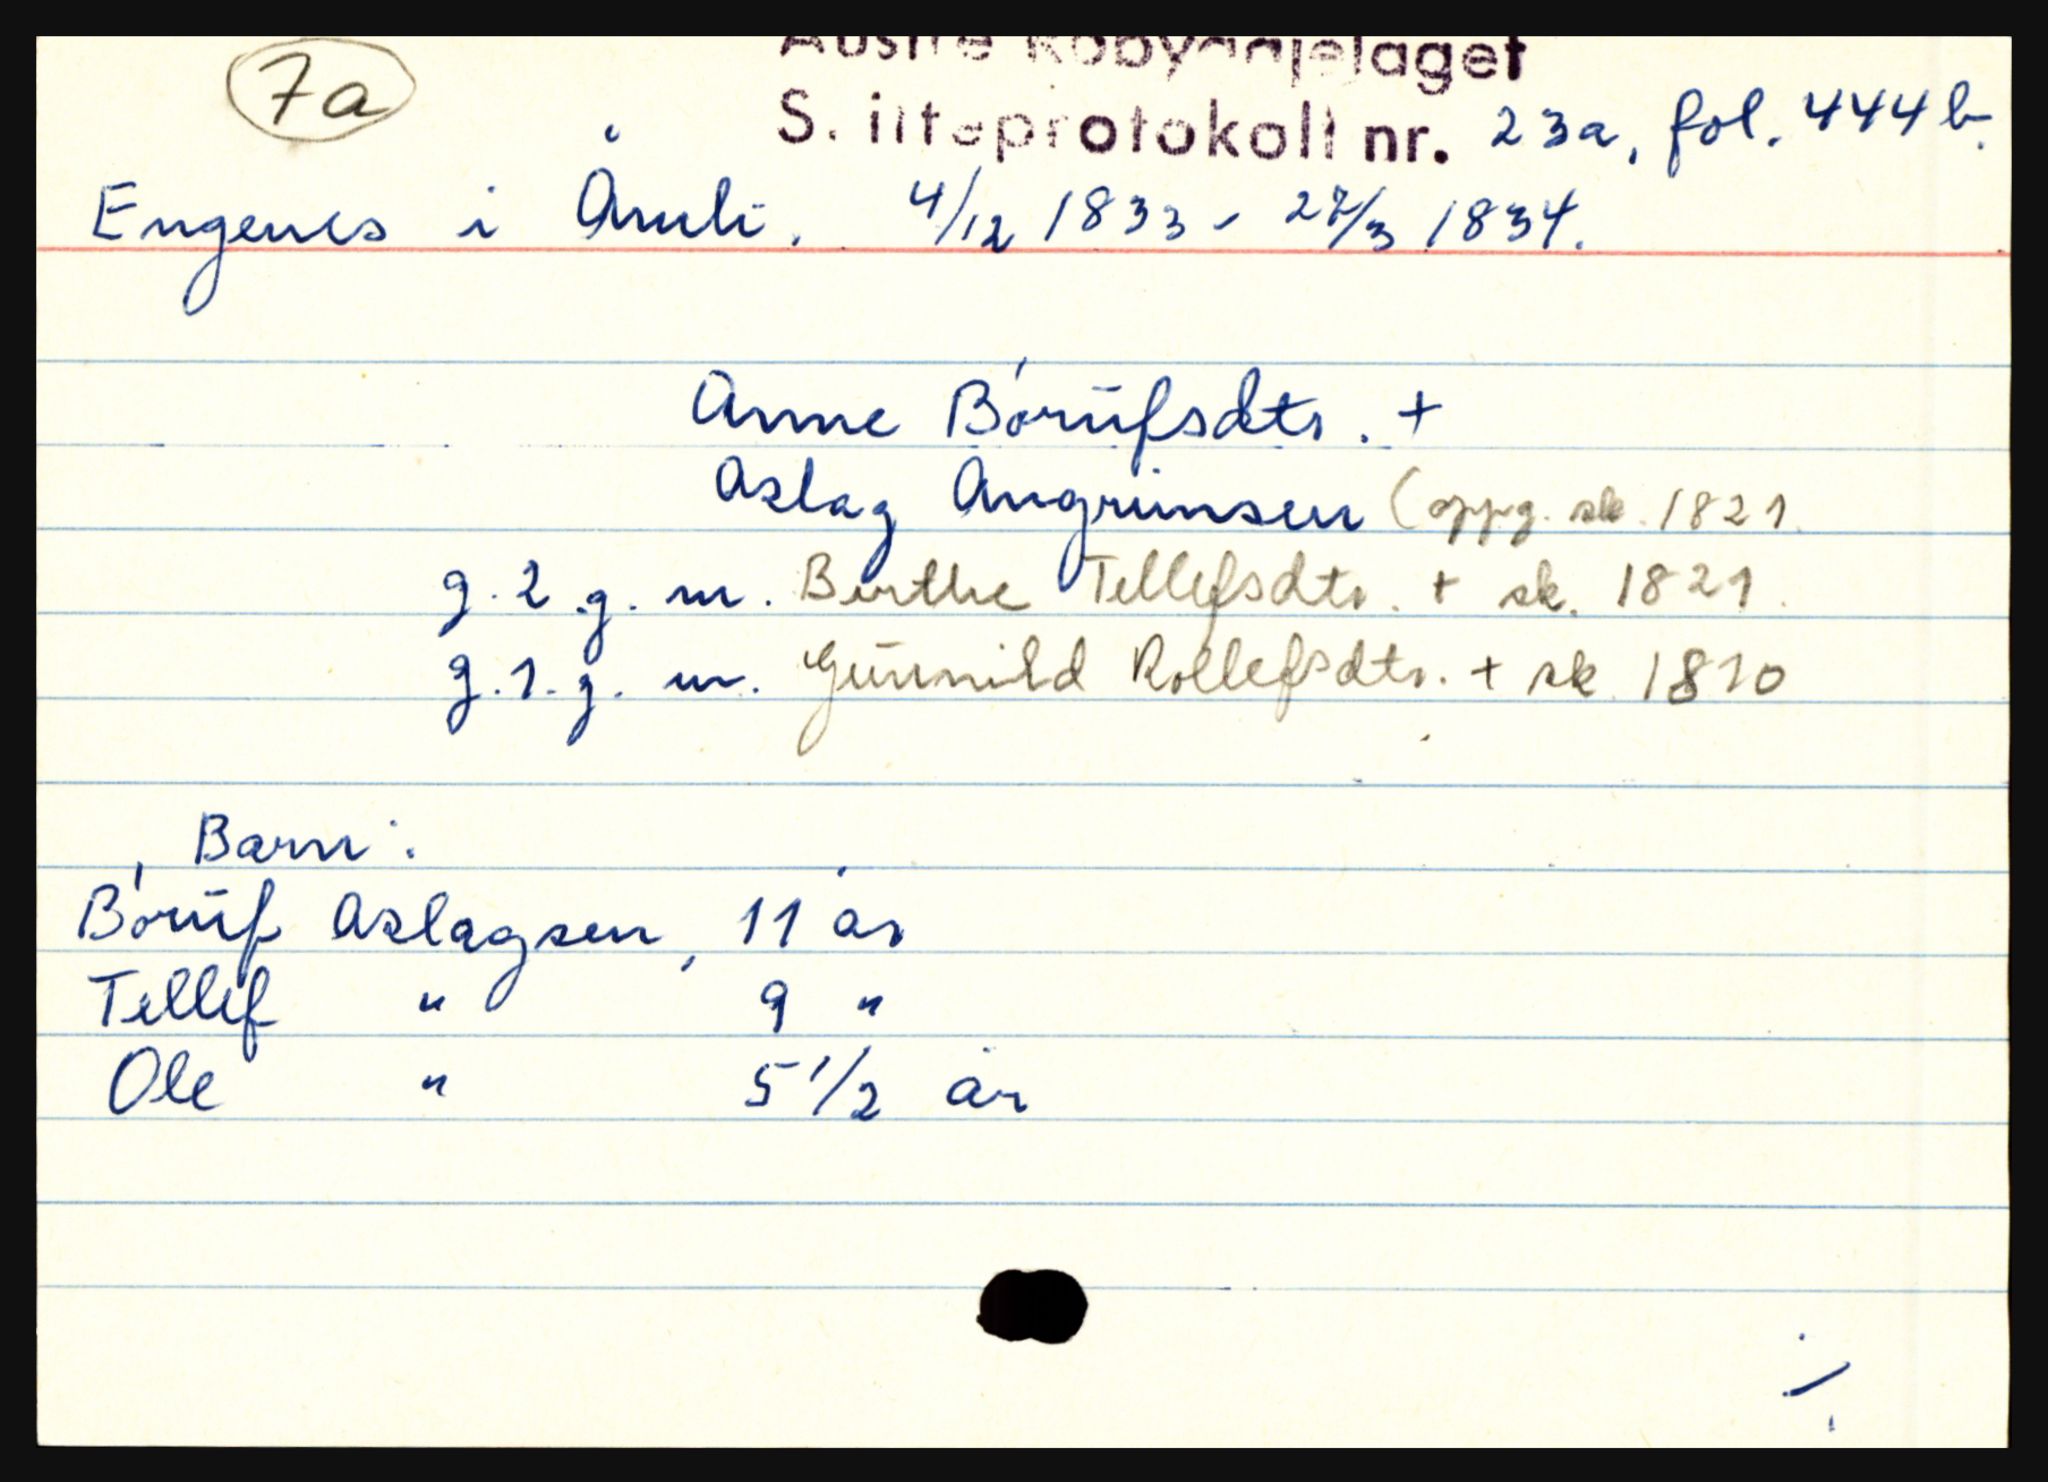 7a
Austre Robyggjelaget
Skifteprotokoll nr. 23a, fol. 444b.
Engenes i Åmli. 4/12 1833 - 27/3 1834.
Anne Bórufsdtr. +
Aslag Angrimsen (oppg. sk. 1821.
g. 2. g. m. Berthe Tellefsdtr. + sk. 1821.
g. 1. g. m. Gunnild Rollefsdtr. + sk. 1810
Barn:
Bóruf Aslagsen, 11 år
Tellef " 9 "
Ole " 5 1/2 år